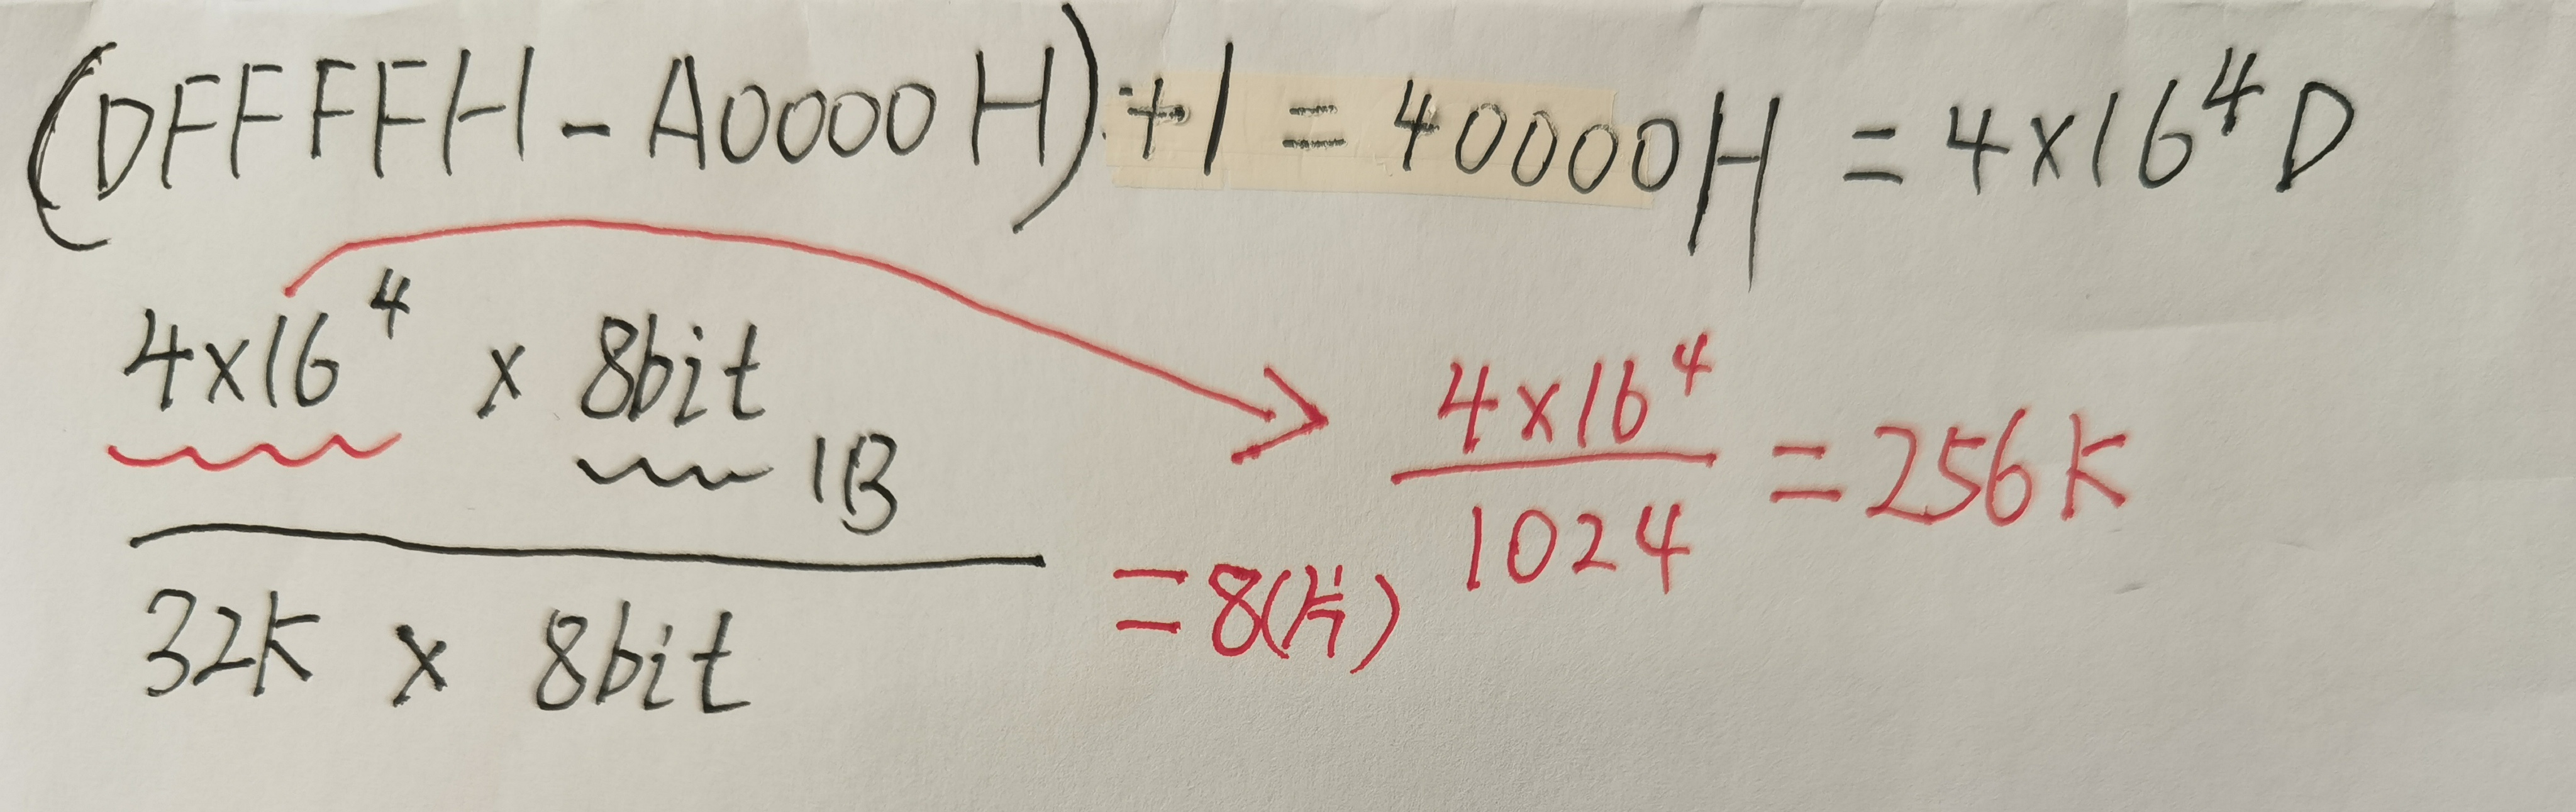 (DFFFFH-A0000H)+1=40000H=4×16⁴D
4×16⁴ × 8bit
1B
32K × 8bit
=8(片)
4×16⁴
1024
=256K